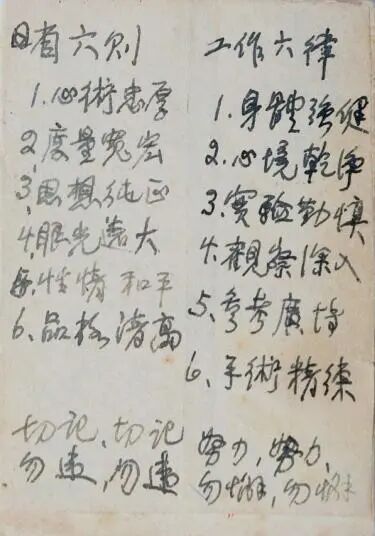 日省六則
1. 心術忠厚
2. 度量寬宏
3. 思想純正
4. 眼光遠大
5. 性情和平
6. 品格清高
切记、切记
勿違、勿違
工作六律
1. 身體強健
2. 心境乾净
3. 实验勤慎
4. 觀察深入
5. 參考廣博
6. 手術精練
努力,努力,
勿懈,勿懈